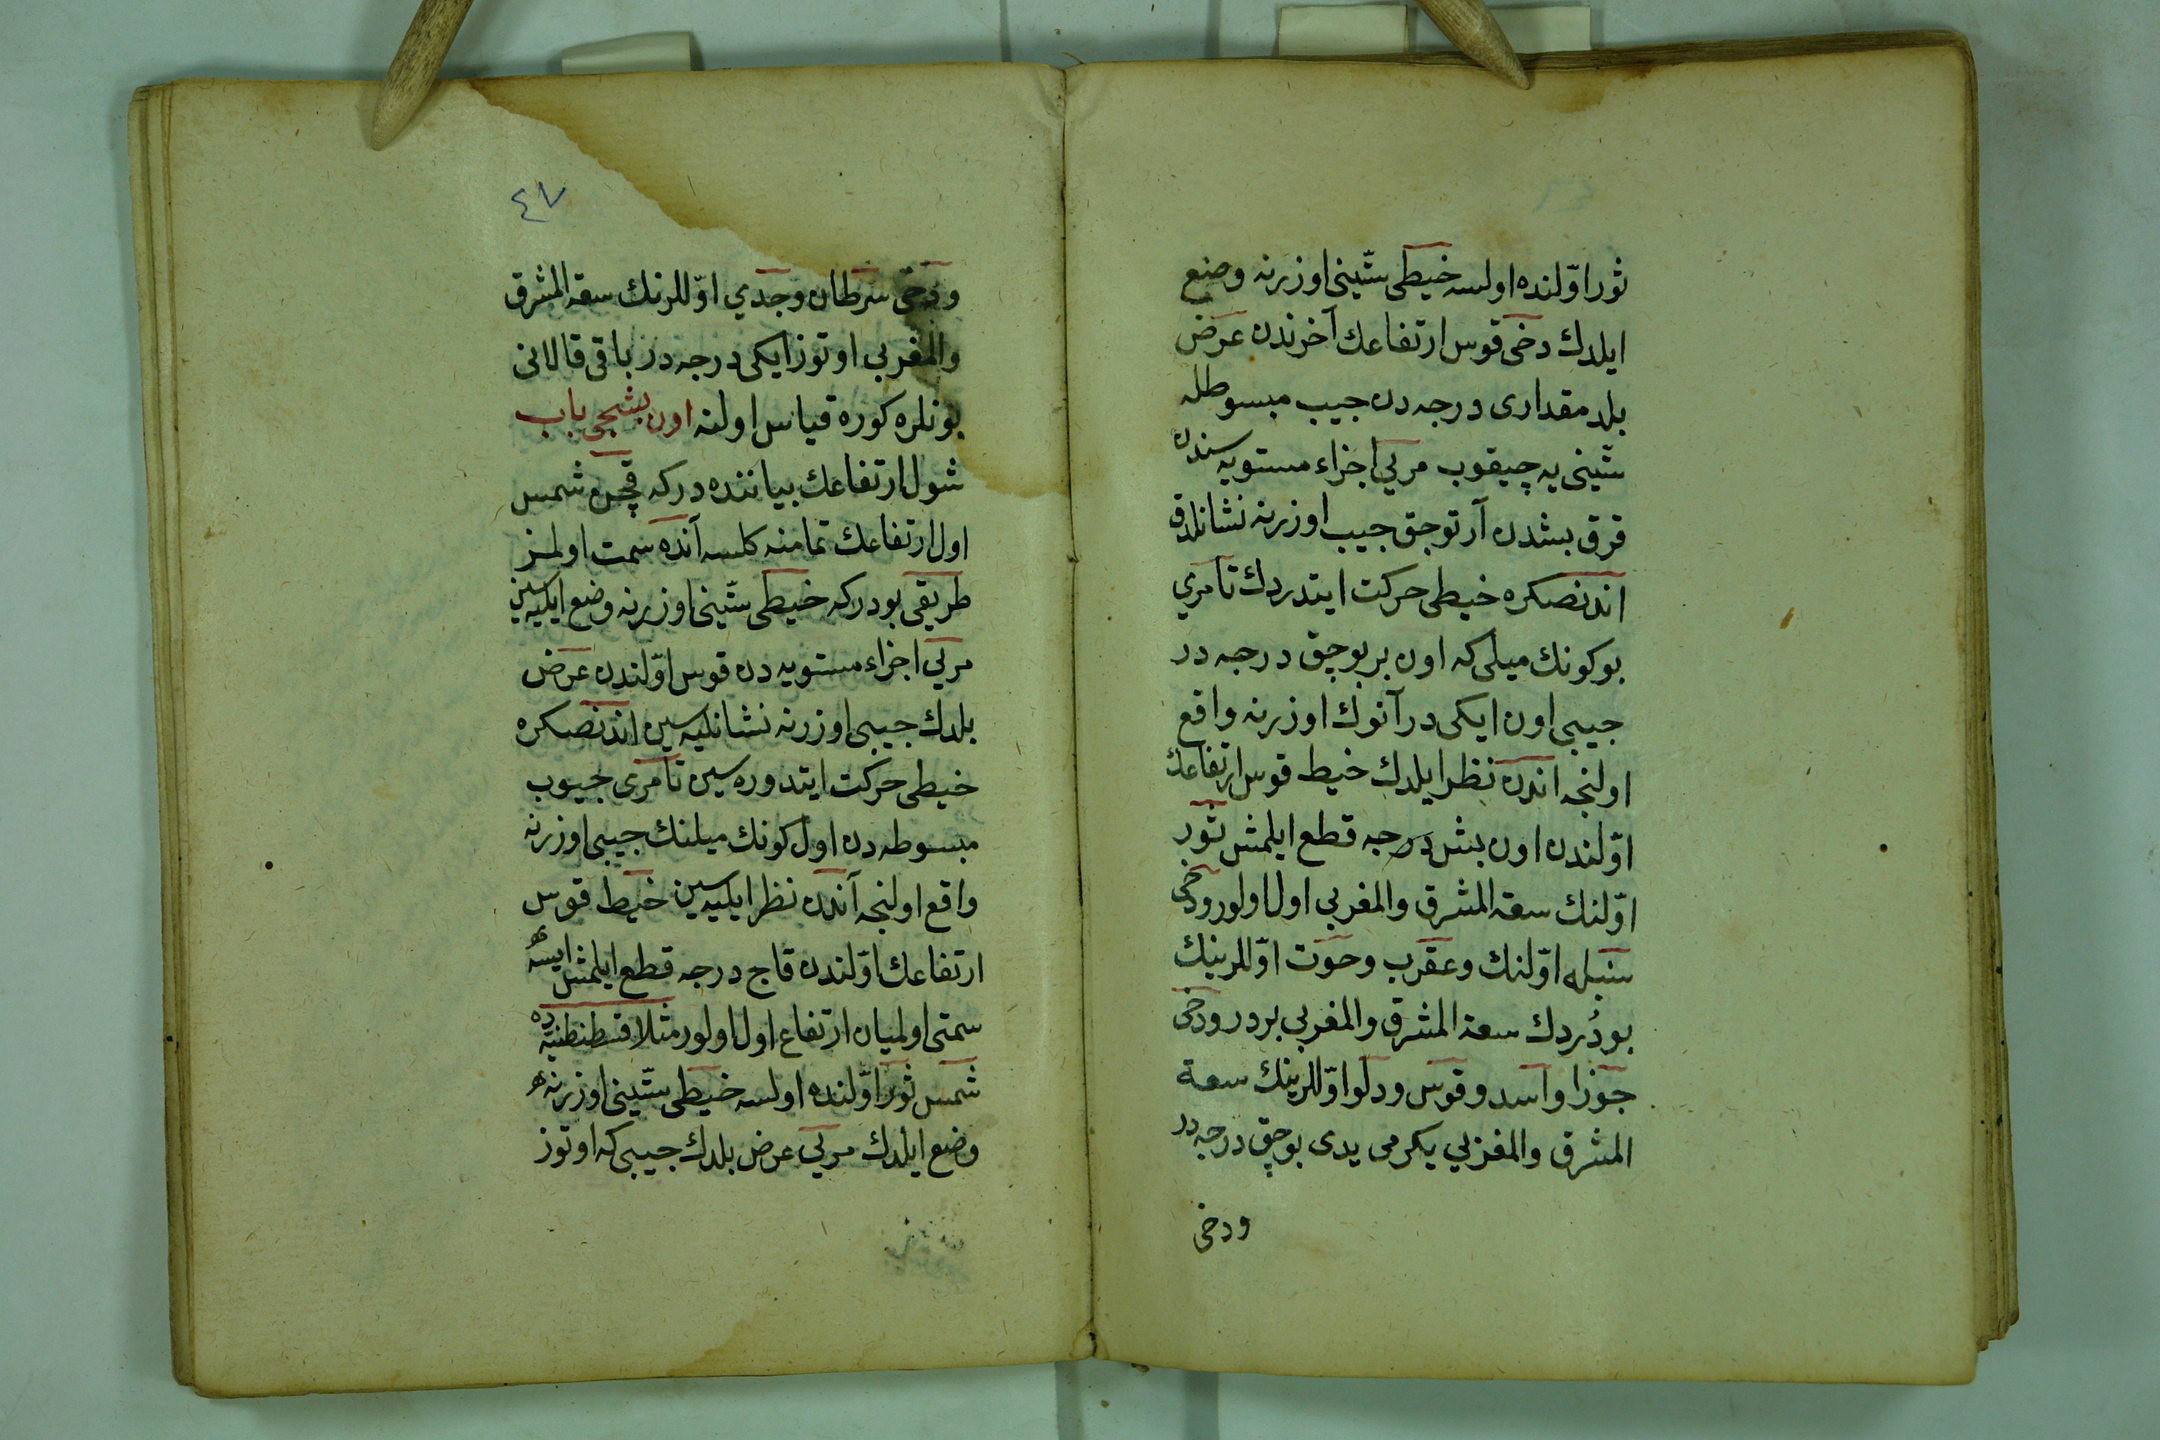 ثور اوّلنده اولسه خيطى ستّينى اوزرنه وضع
ايلدك دخى قوس ارتفاعك آخرندن عرض
بلد مقدارى درجه دن جيب مبسوطله
ستّينى يه چيقوب مريي اجزاء مستويه سندن
قرق بشدن آرتوجق جيب اوزرنه نشانلدق
اندنصكره خيطى حركت ايتدردك تا مري
بو كونك ميلى كه اون بر بوچق درجه در
جيبى اون ايكى در آنوك اوزرنه واقع
اولنجه اندن نظر ايلدك خيط قوس ارتفاعك
اوّلندن اون بش درجه قطع ايلمش ثور
اوّلنك سعة المشرق والمغربي اول اولور ودخى
سنبله اوّلنك وعقرب وحوت اوّللرينك
بودُر دك سعة المشرق والمغربي بردر ودخى
جوزا واسد وقوس ودلو اوّللرينك سعة
المشرق والمغربي يكرمى يدى بوچق درجه در
ودخى
٤٧
ودخى سرطان وجدي اوّللرنك سعة المشرق
والمغربي اوتوز ايكى درجه در باقى قالانى
بونلره كوره قياس اولنه اون بشنجى باب
شول ارتفاعك بياننده در كه قچن شمس
اول ارتفاعك تمامنه كلسه آنده سمت اولمز
طريقى بودر كه خيطى ستّينى اوزرنه وضع ايليه سين
مريي اجزاء مستويه دن قوس اوّلندن عرض
بلدك جيبى اوزرنه نشانليه سين اندنصكره
خيطى حركت ايتدوره سين تا مرى جيوب
مبسوطه دن اول كونك ميلنك جيبى اوزرنه
واقع اولنجه آندن نظر ايليه سين خيط قوس
ارتفاعك اوّلندن قاج درجه قطع ايلمش ايسه
سمتى اولميان ارتفاع اول اولور مثلا قسطنطنيه ده
شمس ثور اوّلنده اولسه خيطى ستّينى اوزرنه
وضع ايلدك مريي عرض بلدك جيبى كه اوتوز